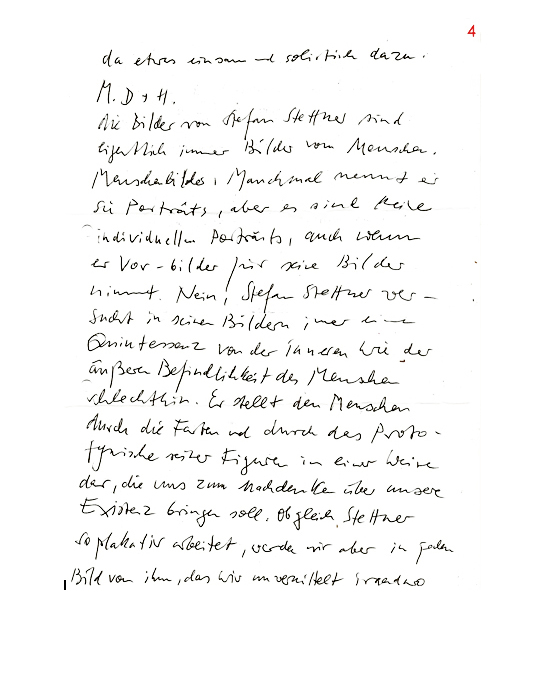 4
da etwas einsam und solistisch dazu.
M. D + H.
Die Bilder von Stefan Stettner sind
eigentlich immer Bilder vom Menschen.
Menschenbilder, Manchmal nennt er
sie Porträts, aber es sind keine
individuellen Porträts, auch wenn
er Vor-bilder für seine Bilder
nimmt. Nein, Stefan Stettner ver-
sucht in seinen Bildern immer eine
Quintessenz von der inneren wie der
äußeren Befindlichkeit des Menschen
schlechthin. Er stellt den Menschen
durch die Farben und durch das Proto-
typische seiner Figuren in einer Weise
dar, die uns zum Nachdenken über unsere
Existenz bringen soll. Obgleich Stettner
so plakativ arbeitet, werden wir aber in jedem
Bild von ihm, das wir unvermittelt irgendwo